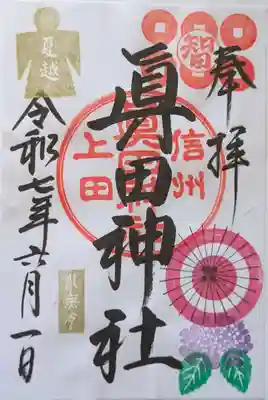 奉拝
智
眞田神社
信州
上田
夏越
令和七年六月一日
水無月